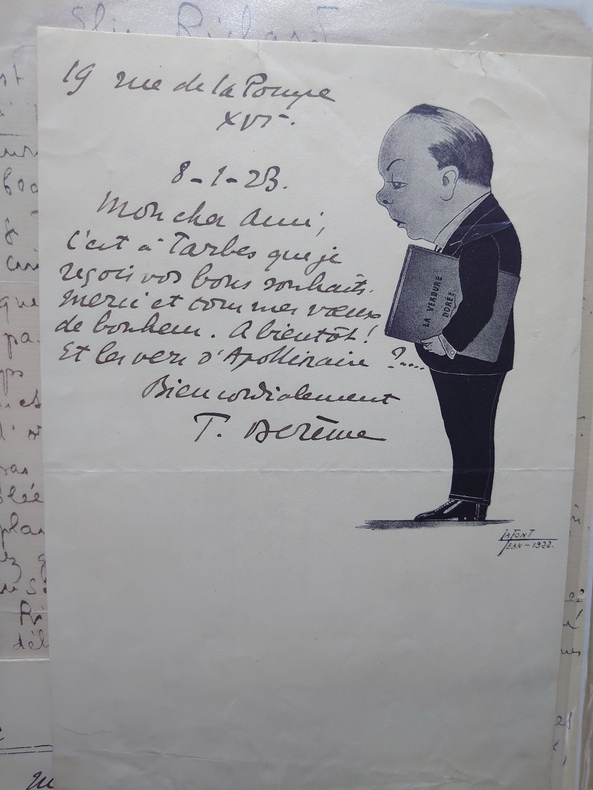 Elie Richard
19 rue de la Pompe
XVIe.
8-1-23.
Mon cher Ami,
c'est à Tarbes que je
reçois vos bons souhaits.
merci et tous mes vœux
de bonheur. A bientôt!
Et les vers d'Apollinaire ?...
Bien cordialement
T. Derème
LA VERDURE
DORÉE
LAFONT
JEAN-1922.